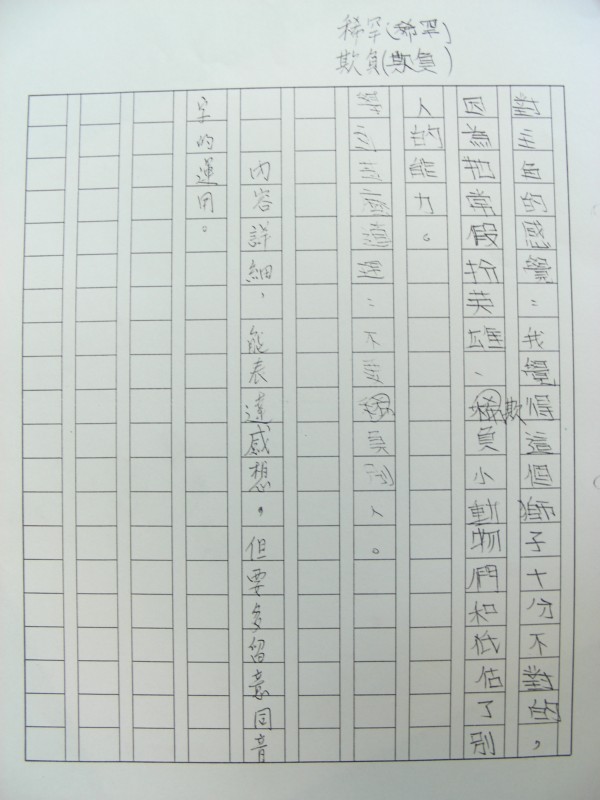 稀罕(稀罕)
欺負(欺負)
對主角的感覺:我覺得這個獅子十分不對的,
因為扣常假扮英雄、稀欺負小動物們和低估了別
人的能力。
學到的道理:不要稀負別人。
內容詳細,能表達感想。但要多留意同音
字的運用。